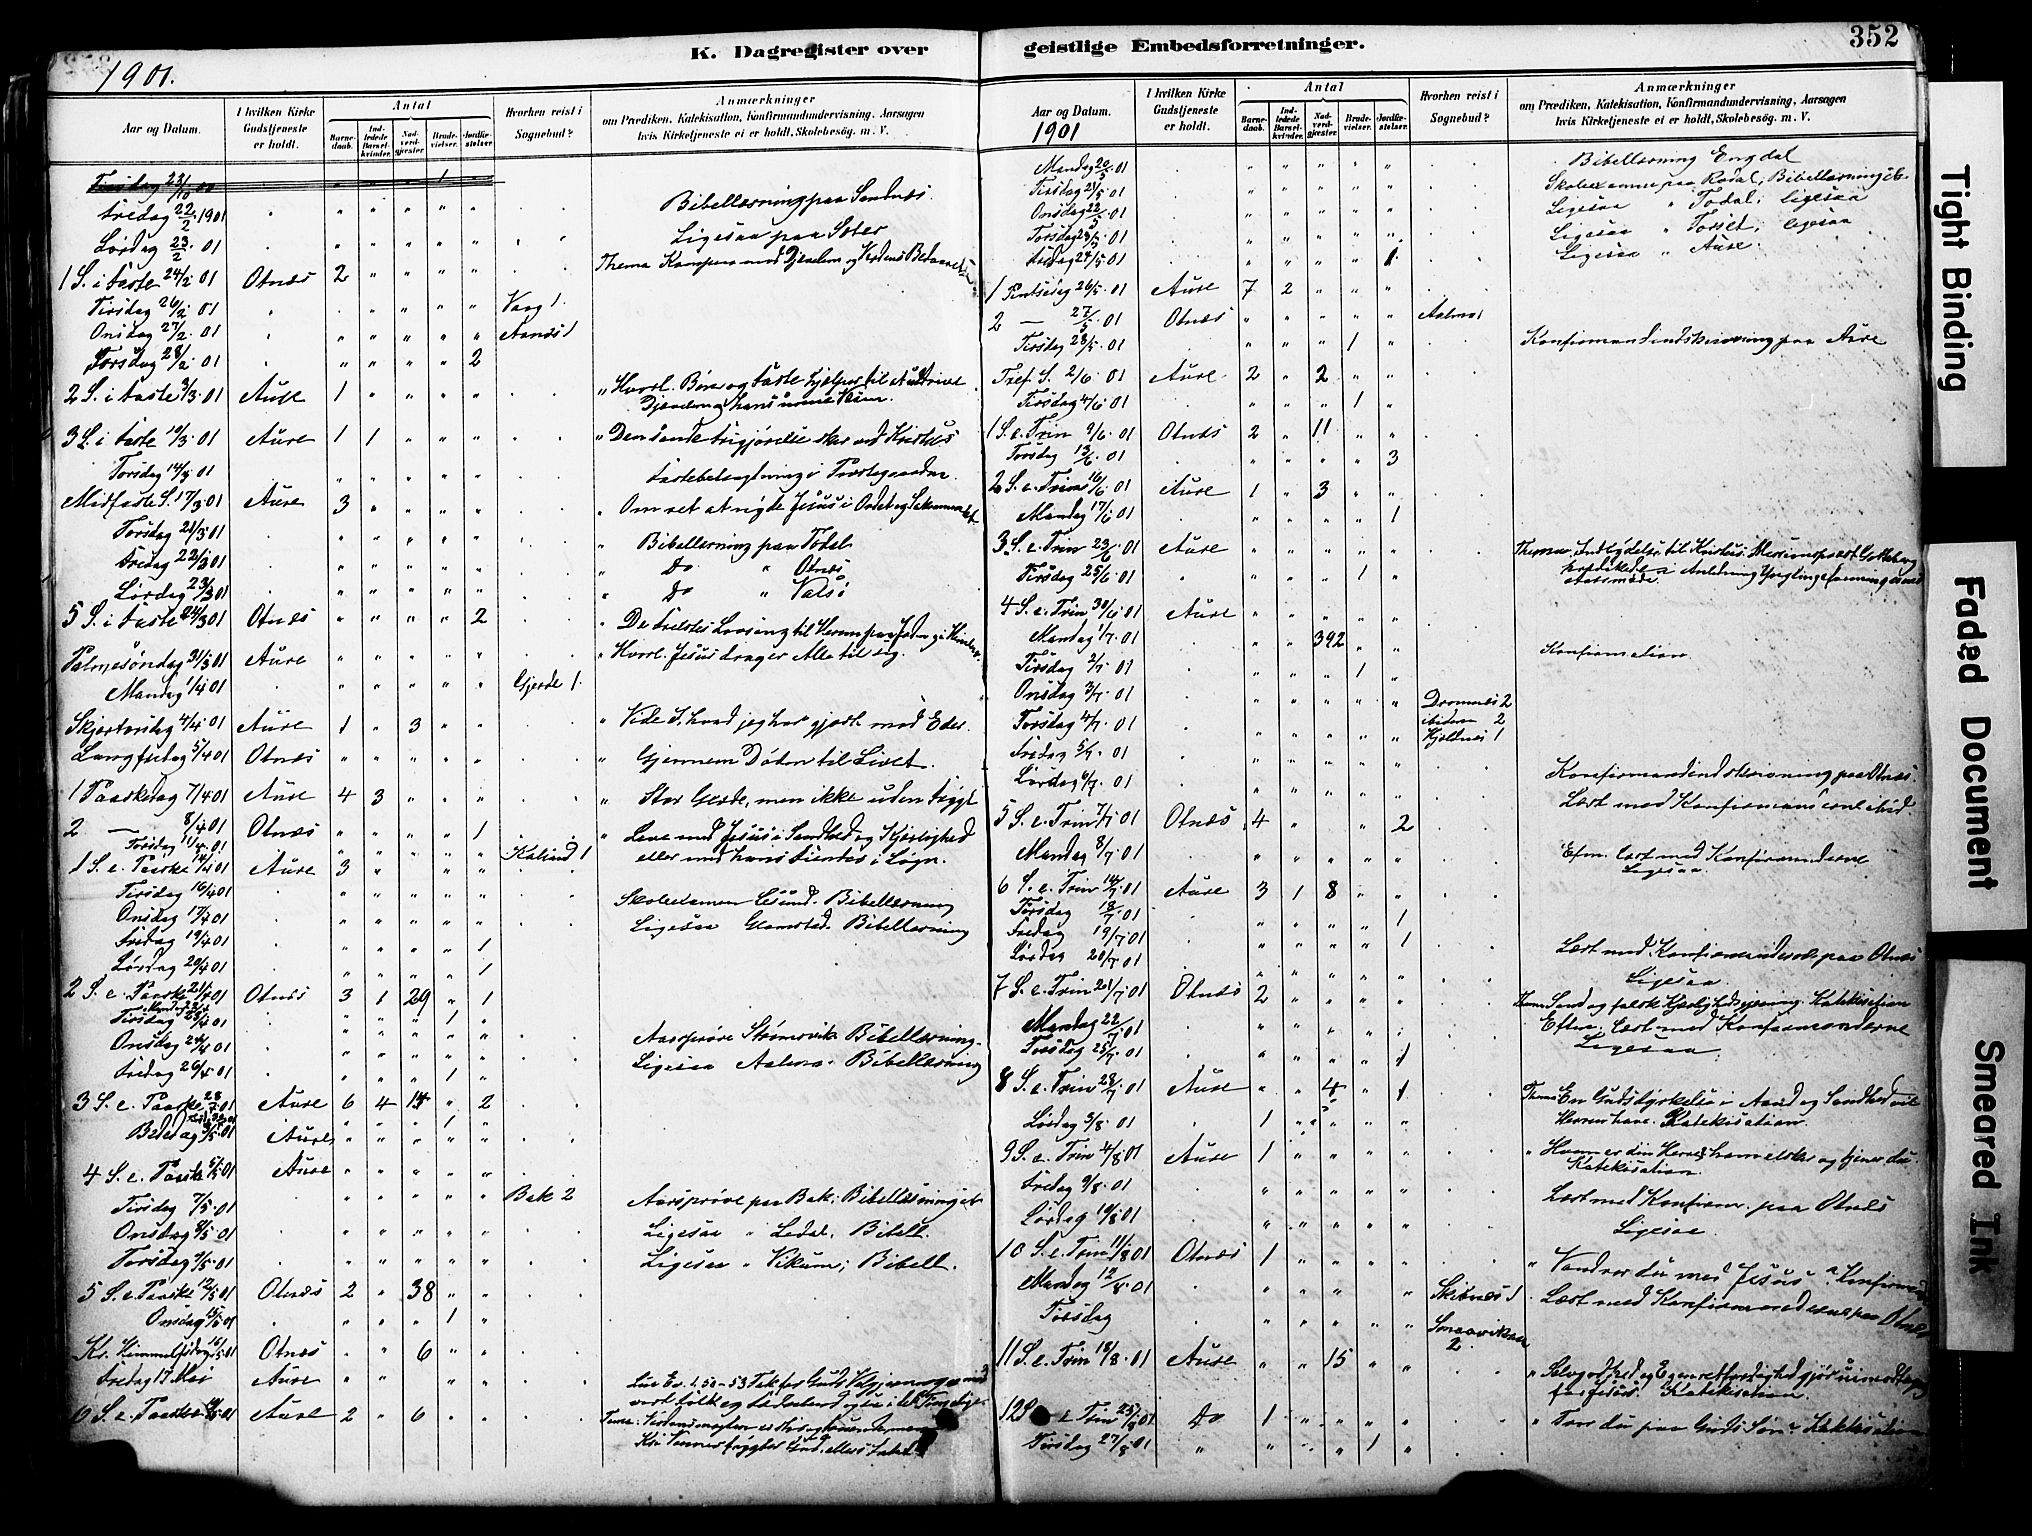 K. Dagregister over geistlige Embedsforretninger.
352
1901.
Aar og Datum.
I hvilken Kirke Gudstjeneste er holdt.
Antal
Barnedaab.
Indledede Barselkvinder.
Nadverdgjester
Brudevielser.
Jordfæstelser.
Hvorhen reist i Sognebud?
Anmærkninger
om Prædiken, Katekisation, Konfirmandundervisning, Aarsagen
hvis Kirketjeneste ei er holdt, Skolebesøg. m. V.
Tirsdag 23/10 00 " " " 1 "
Fredag 22/2 1901 " " " " " Bibellæsning paa Sandnes.
Lördag 23/2 01 " " " " " Ligesaa paa Sæter
1 S. i Faste 24/2 01 Otnæs 2 " " " " Thema Kampen mod Djævelen og
Tirsdag 26/2 01 " " " " " Vaag 1.
Onsdag 27/2 01 " " " " " Aanæs 1
Torsdag 28/2 01 " " " " 2
2 S. i Faste 3/3 01 Aure 1 " " " " " Hvorl. Bön og Faste hjelper til at uddrive
Djævelen og hans urene Væsen.
3 S. i Faste 10/3 01 Aure 1 1 " " " " Den sande Frigjørelse sker ved Kristus
Torsdag 14/3 01 " " " " " Fastebetragtning i Præstegaarden.
Midfaste S. 17/3 01 Aure 3 " " " " " Om ret at nyde Jesus i Ordet og Sakramentet
Torsdag 21/3 01 " " " " " " Bibellæsning paa Todal
Fredag 22/3 01 " " " " " " Do " Otnæs
Lördag 23/3 01 " " " " " " Do " Valsö
5 S. i Faste 24/3 01 Otnæs " " " " 2 " De Frelstes Lovsang til Herren paa Jorden og i Himlen
Palmesöndag 31/3 01 Aure " " " " " " Hvorl. Jesus drager Alle til sig.
Mandag 1/4 01 " " " " " Gjerde 1.
Skjærtorsdag 4/4 01 Aure 1 " 3 " " " Vide I, hvad jeg har gjort mod Eder.
Langfredag 5/4 01 Otnæs " " " " " " Gjennem Döden til Livet.
1 Paaskedag 7/4 01 Aure 4 3 " " " " Stor Glæde, men ikke uden Frygt
2 — 8/4 01 Otnæs " " " " 1 " Leve med Jesus i Sandhed og Kjærlighed
Torsdag 11/4 01 " " " " " Kalund 1 eller med hans Fiender i Løgn.
1 S. e. Paaske 14/4 01 Aure 3 " " " "
Tirsdag 16/4 01 " " " " " Skoleexamen Lesund. Bibellæsning
Onsdag 17/4 01 " " " " " Ligesaa Glamstad. Bibellæsning
Fredag 19/4 01 " " " " 1
Lördag 20/4 01 " " " " 1
2 S. e. Paaske 21/4 01 Otnæs 3 1 29 " 1
Tirsdag 23/4 01 " " " 1 "
Onsdag 24/4 01 " " " " " Aarsprøve Strømsvik Bibellæsning.
Fredag 26/4 01 " " " 1 " Ligesaa Aalmo. Bibellæsning
3 S. e. Paaske 28/4 01 Aure 6 4 14 " 2
Bededag 3/5 01 Aure " " " " "
4 S. e. Paaske 5/5 01 Aure " " " " "
Tirsdag 7/5 01 " " " " " Bak 2 Aarsprøve paa Bak; Bibellæsning etc
Onsdag 8/5 01 " " " " " Ligesaa " Ledal. Bibell.
Torsdag 9/5 01 " " " " " Ligesaa " Vikum; Bibell.
5 S. e. Paaske 12/5 01 Otnæs 2 " 38 " "
Onsdag 15/5 01 " " " 1 "
Kr. Himmelfsdag 16/5 01 Otnæs " " 6 " "
Fredag 17 Mai Aure " " " " " Luc Ev. 1.50-53 Tak for Guds Velgjerninger mod
vort Folk og
6 S. e. Paaske 19/5 01 Aure 2 " 6 " "
Kri Venner frygter Gud
Aar og Datum.
1901
I hvilken Kirke Gudstjeneste er holdt.
Antal
Barnedaab.
Indledede Barselkvinder.
Nadverdgjester.
Brudevielser.
Jordfæstelser.
Hvorhen reist i Sognebud?
Anmærkninger
om Prædiken, Katekisation, Konfirmandundervisning, Aarsagen
hvis Kirketjeneste ei er holdt, Skolebesøg. m. V.
Mandag 20/5 01 " " " " " Bibellæsning Engdal
Tirsdag 21/5 01 " " " " " Skoleexamen paa Rodal; Bibellæsning etc.
Onsdag 22/5 01 " " " " " Ligesaa " Todal; ligesaa
Torsdag 23/5 01 " " " " " Ligesaa " Torset; ligesaa
Fredag 24/5 01 " " " " 1 Ligesaa " Aure.
1 Pintsedag 26/5 01 Aure 7 2 " " "
2 — 27/5 01 Otnæs " " " " " Aalmo 1
Tirsdag 28/5 01 " " " 1 " Konfirmandindskrivning paa Aure
Tref. S. 2/6 01 Aure 2 " 2 " "
Tirsdag 4/6 01 " " " 1 "
1 S. e. Trin 9/6 01 Otnæs 2 " 11 " "
Torsdag 13/6 01 " " " " 3
2 S. e. Trin 16/6 01 Aure 1 " 3 " "
Mandag 17/6 01 " " " " 1
3 S. e. Trin 23/6 01 Aure " " " " " Thema. Indbydelse til Kristus. Missionspræst
Tirsdag 25/6 01 " " " 1 " prædikede i Anledning Ynglingeforeningens
Aarsmøde.
4 S. e. Trin 30/6 01 Aure " " " " "
Mandag 1/7 01 " " 392 " " Konfirmation
Tirsdag 2/7 01 " " " 1 "
Onsdag 3/7 01 " " " " " Dromnes 2
Torsdag 4/7 01 " " " " " ibidem 2
Fredag 5/7 01 " " " " " Kjeldnes 1
Lørdag 6/7 01 " " " " " Konfirmandindskrivning paa Otnæs.
5 S. e. Trin 7/7 01 Otnæs 4 " " " 2 Læst med Konfirmanderne ibid.
Mandag 8/7 01 " " " " " Efm. læst med Konfirmanderne
Ligesaa.
6 S. e. Trin 14/7 01 Aure 3 1 8 " "
Torsdag 18/7 01 " " " " 1
Fredag 19/7 01 " " " " 1 Læst med Konfirmanderne paa Otnæs
Lördag 20/7 01 " " " " " Ligesaa
7 S. e. Trin 21/7 01 Otnæs 2 " " " " Thema Sand og falsk Kjærlighedsgjerning. Katekisation
Mandag 22/7 01 " " " " " Efterm. Læst med Konfirmanderne
Torsdag 25/7 01 " " " " 1 Ligesaa.
8 S. e. Trin 28/7 01 Aure " " 4 " 1 Thema En Gudsdyrkelse i Aand og Sandhed vil
Lördag 3/8 01 1 " " " " Herren have. Katekisation.
9 S. e. Trin 4/8 01 Aure 1 " " " " " Hvem er din Herre, ham elsker og tjener du.
Katekisation.
Fredag 9/8 01 " " " " " Læst med Konfirm. paa Otnæs
Lördag 10/8 01 " " " " " Ligesaa
10 S. e. Trin 11/8 01 Otnæs 1 " " " " " Vandrer du med Jesus? Konfirmand
Mandag 12/8 01 " " " " " Skibnæs 1 Læst med Konfirmanderne paa Otnæs
Torsdag " " " " " Smaaviken 2
11 S. e. Trin 18/8 01 Aure " " 15 " " " Selvgodhed og Egenretfærdighed gjör uimodtagelig
for Jesus. Katekisation.
12 S e Trin 25/8 01 Do 1 " " " " " Tror du paa Guds Søn? Katekisation
Tirsdag 27/8 01 " " " " 1 "
Tight Binding
Faded Document
Smeared Ink